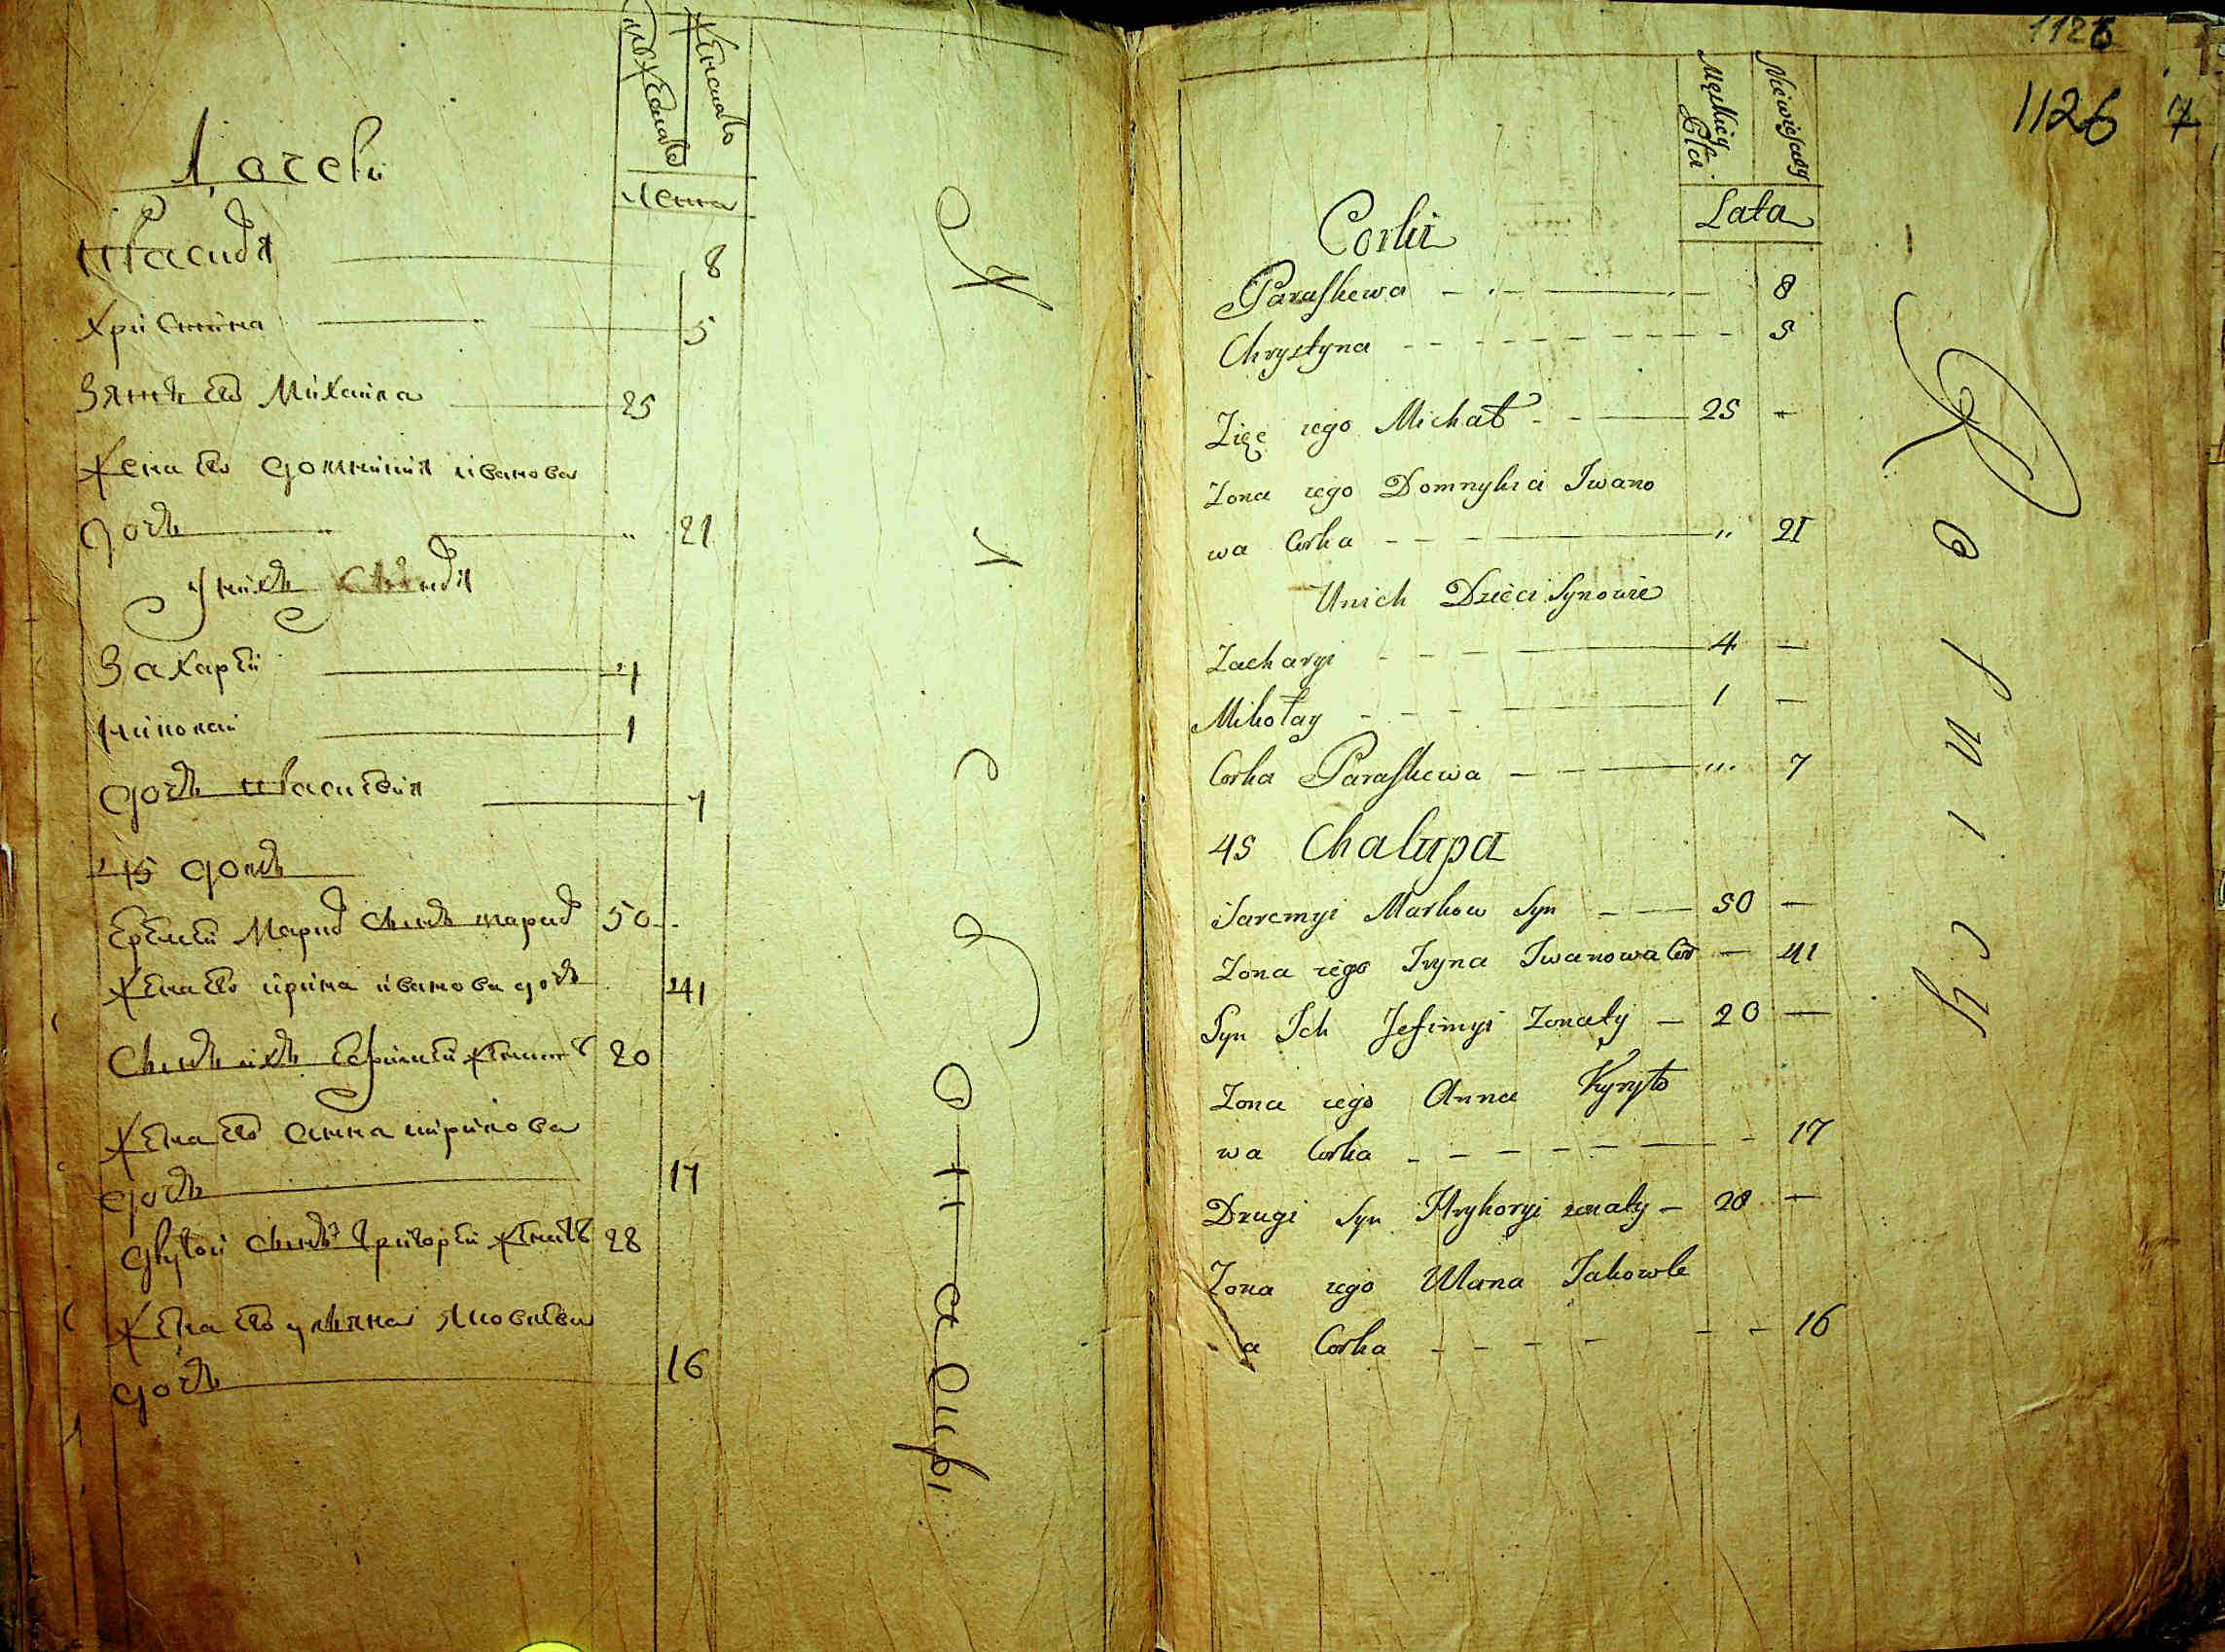 Дочери
8
Христина 5
Зять его Михайла 25
Жена его Домникия иванова
дочь 21
У них
Захарей 4
Николай 1
дочь 7
45 домъ
Еремей Марков сынъ 50
Жена его ирина иванова дочь 41
Сынъ ихъ Ефимей женатъ 20
Жена его анна кирилова
дочь 17
другой сынъ Григорей женатъ 28
Жена его ульяна Яковлева
дочь 16
Женска
Лета
1126
1126 7
Męskiey Płci
Niewieściey
Lata
Corki
Paraskewa 8
Chrystyna 5
Zięć iego Michał 25
Zona iego Domnykia Iwano
wa Corka " 21
Unich Dzieci Synowie
Zacharyi 4
Mikołay 1
Corka Paraskewa " 7
45 Chalupa
Jaremyi Markow Syn 50
Zona iego Iryna Iwanowa Cor 41
Syn Ich Jefimyi Zonaty 20
Zona iego Anna Kyryło
wa Corka 17
Drugi Syn Hryhoryi zonaty 28
Zona iego Ulana Jakowle
a Corka 16